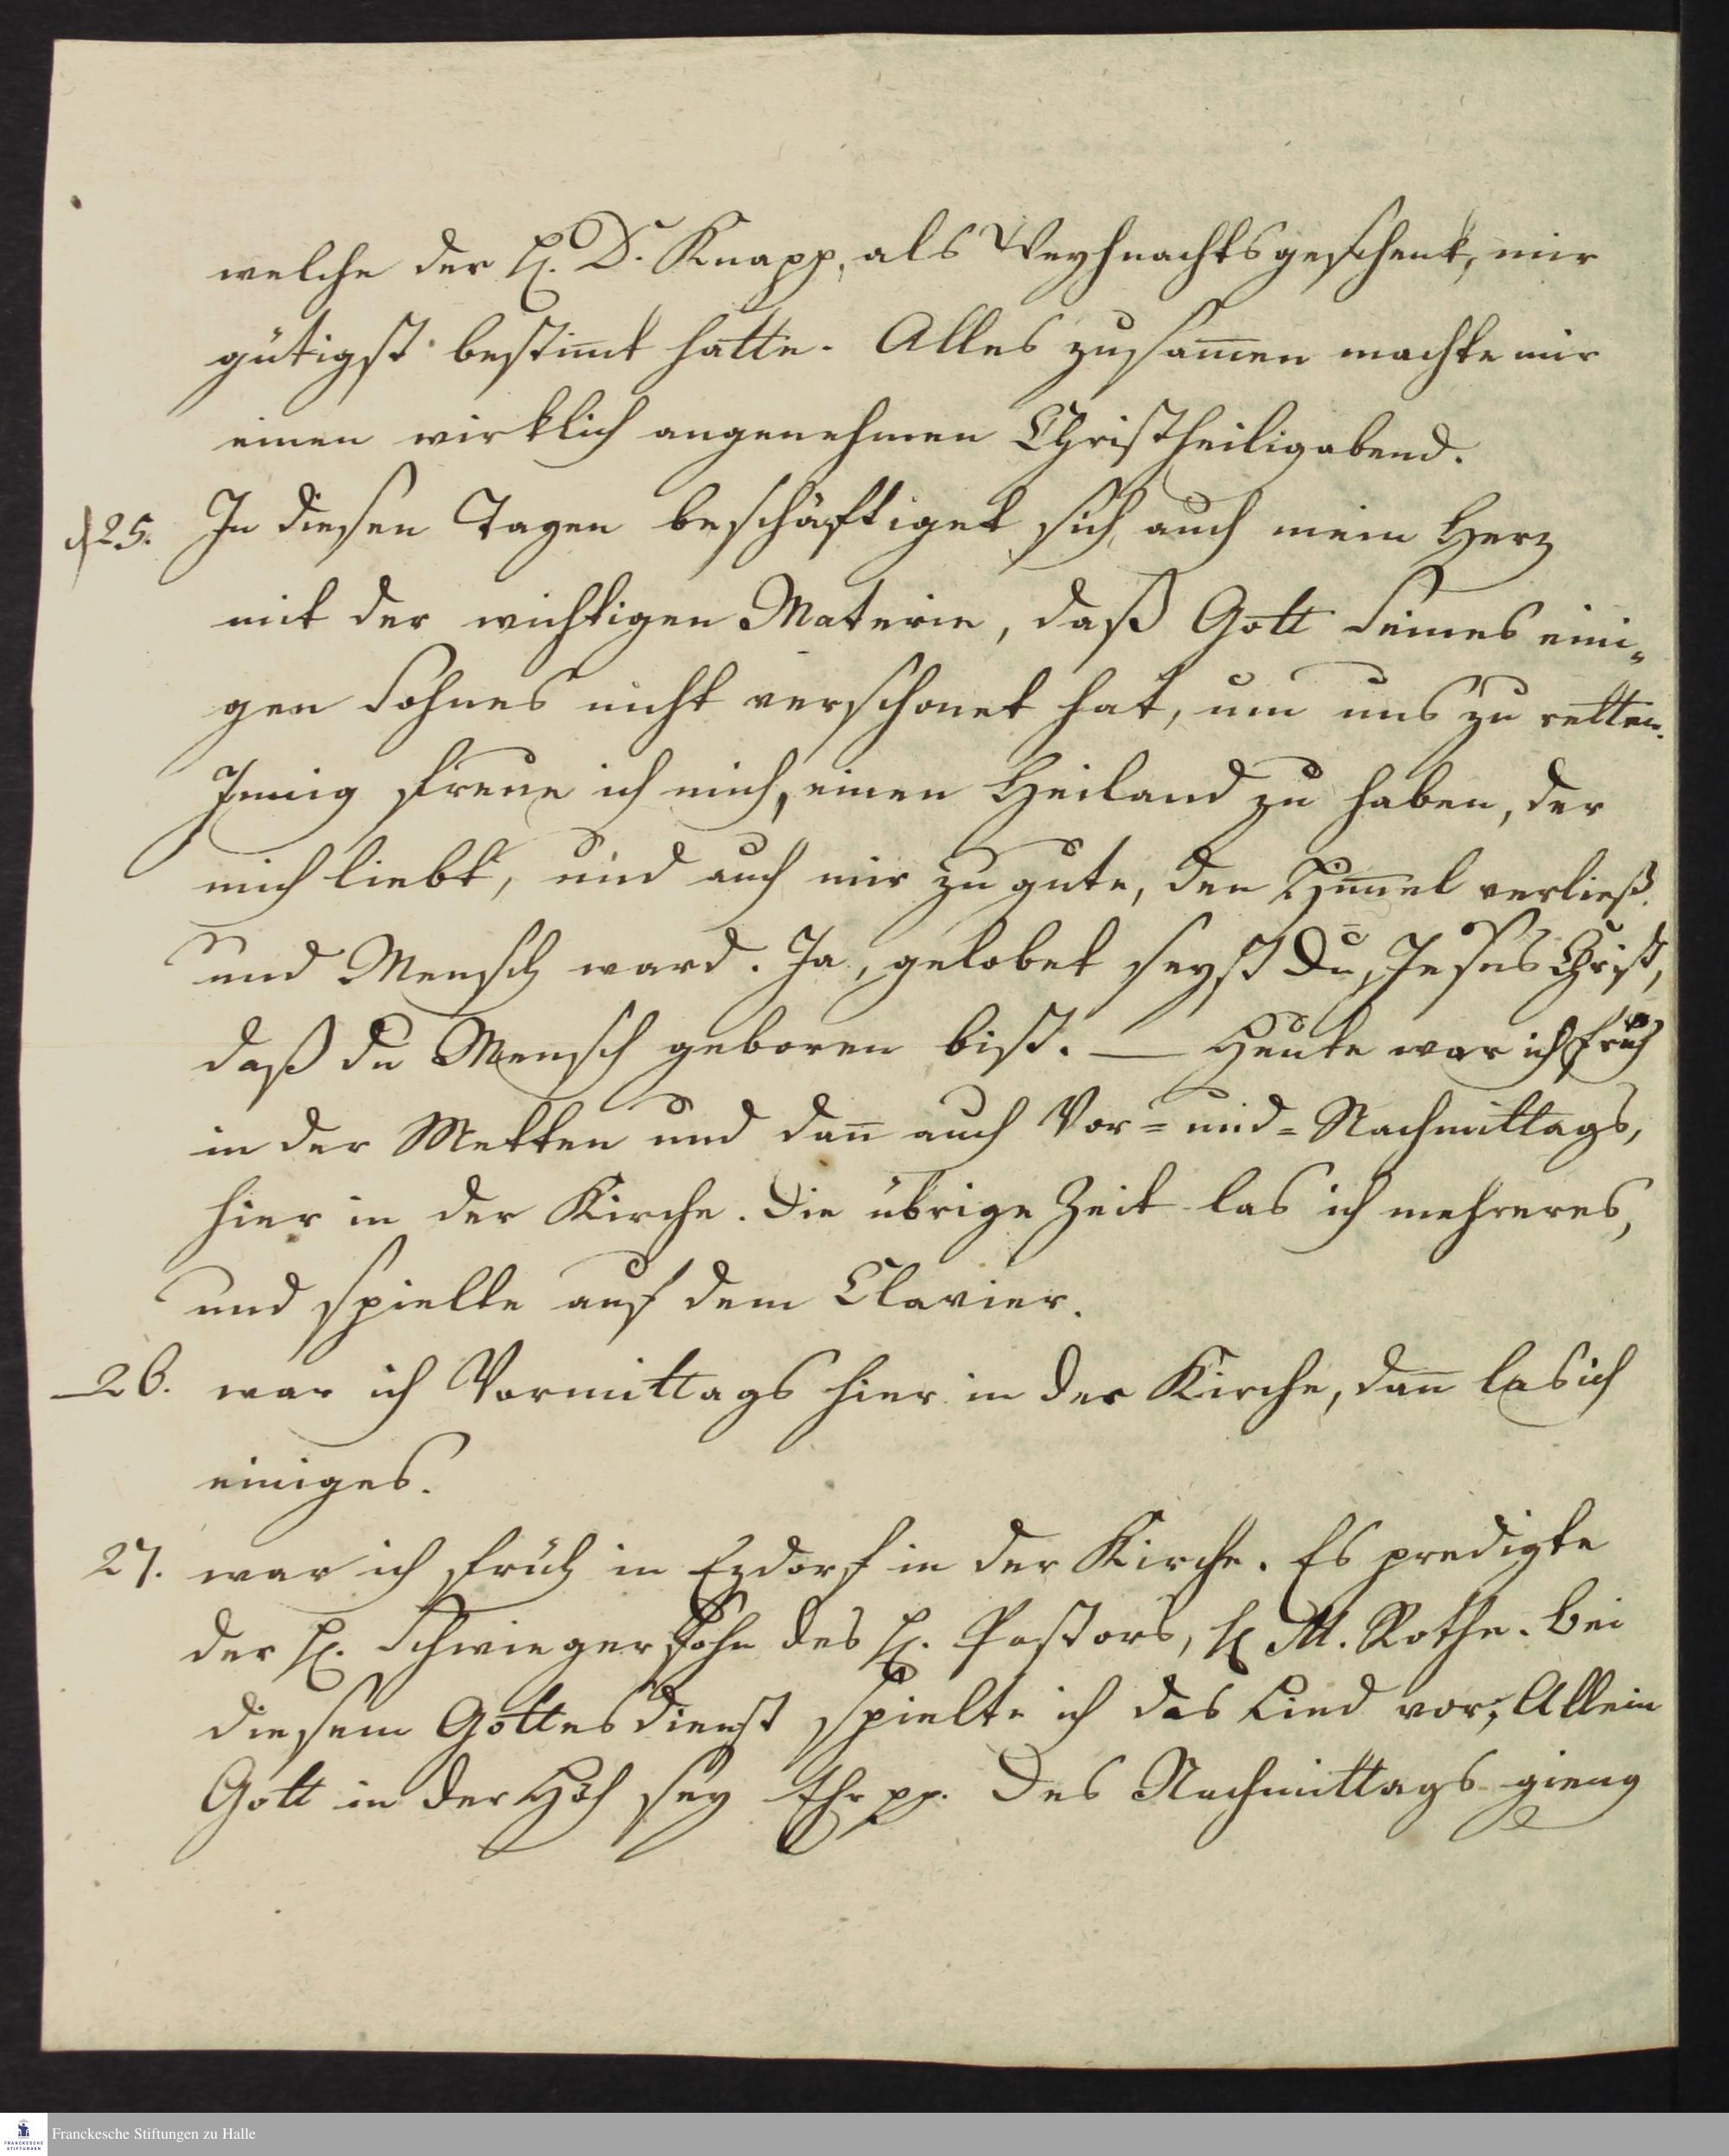 welche der H. D. Knapp, als Weyhnachtsgeschenk, mir
gütigst bestim̅t hatte. Alles zusam̅en machte mir
einen wirklich angenehmen Christheiligabend.
d 25. In diesen Tagen beschäftiget sich auch mein Herz
mit der wichtigen Materie, daß Gott Seines eini„
gen Sohnes nicht verschonet hat, um uns zu retten.
Innig freue ich mich, einen Heiland zu haben, der
mich liebt, und auch mir zu gute, den Him̅el verließ
und Mensch ward. Ja, gelobet seyst Du, Jesus Christ,
daß du Mensch geboren bist. — Heute war ich früh
in der Metten und dan̅ auch Vor= und= Nachmittags,
hier in der Kirche. Die übrige Zeit las ich mehreres,
und spielte auf dem Clavier.
— 26. war ich Vormittags hier in der Kirche, dan̅ las ich
einiges.
27. war ich früh in Ezdorf in der Kirche. Es predigte
der H. Schwiegersohn des H. Pastors, H M. Rothe. bei
diesem Gottesdienst spielte ich das Lied vor, Allein
Gott in der Höh sey Ehr pp. Des Nachmittags gieng
FRANCKESCHE STIFTUNGEN
Franckesche Stiftungen zu Halle